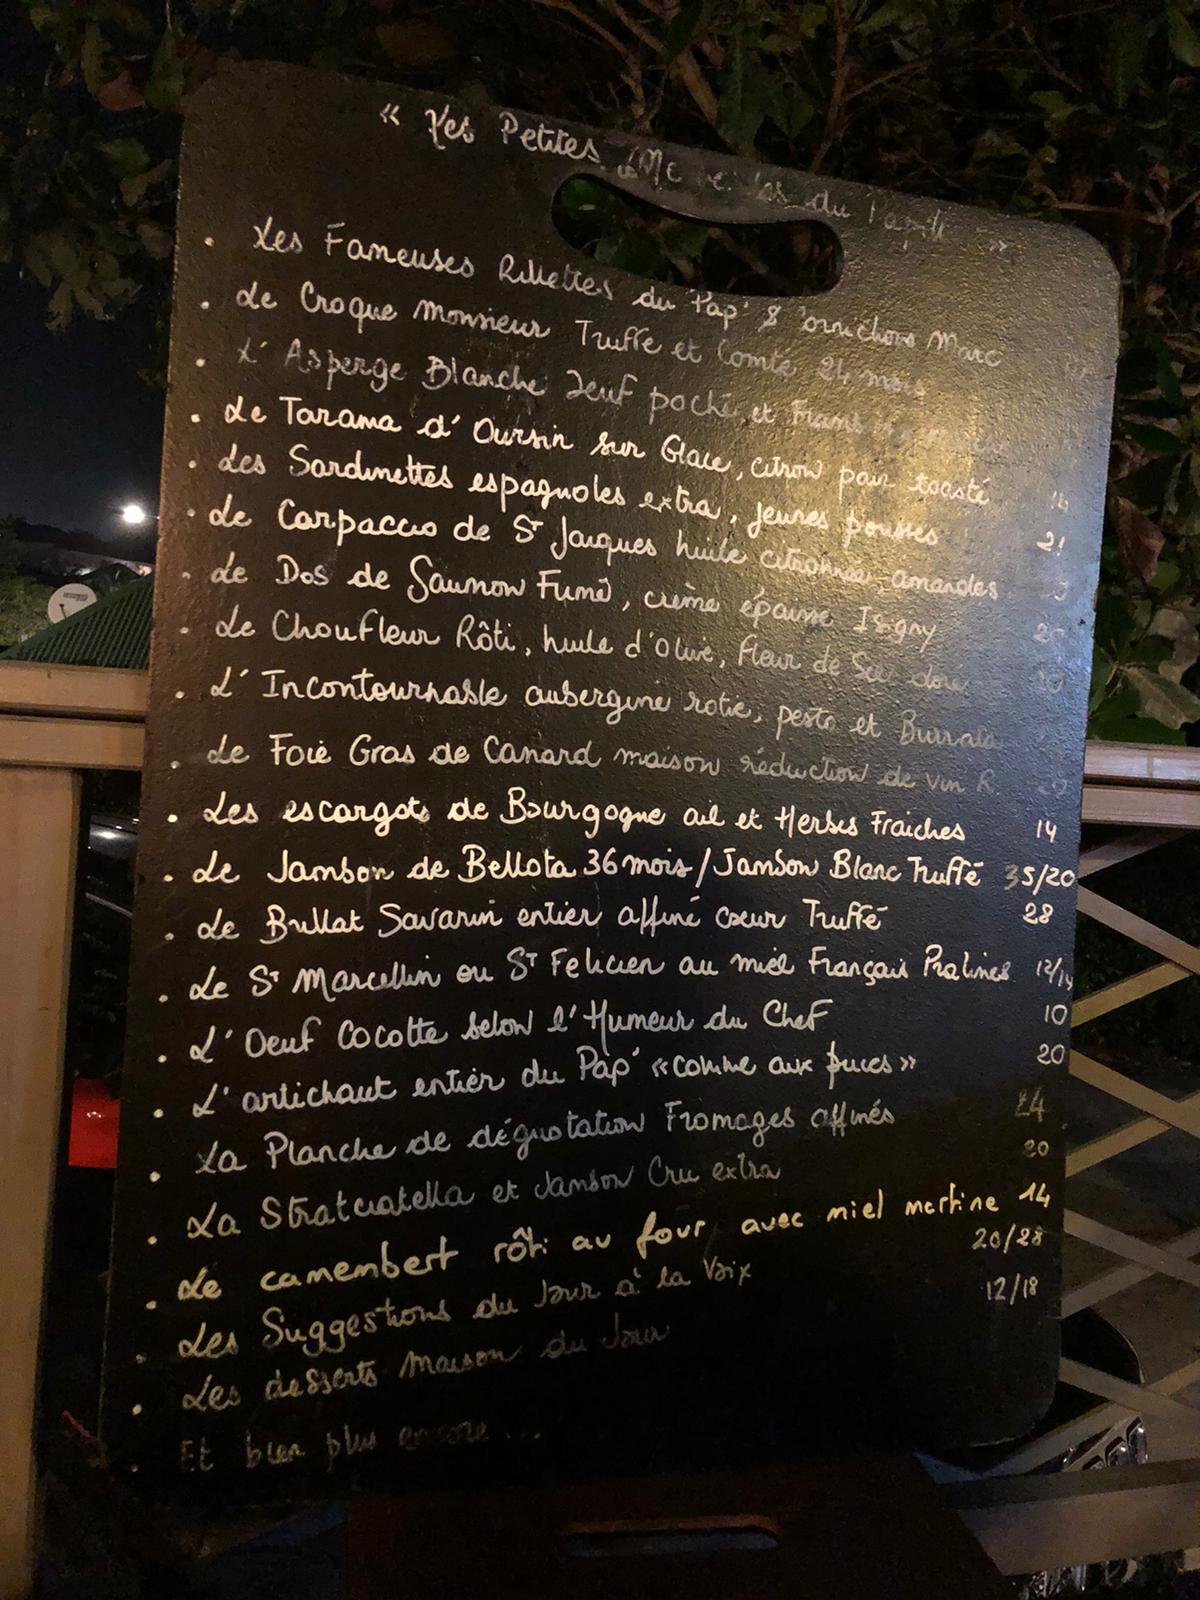 « Les Petites du »
. Les Fameuses Rillettes du Pap' & Cornichons Marc
. Le Croque Monsieur Truffe et Comté 24 mois
. L' Asperge Blanche Oeuf poché et
. Le Tarama d' Oursin sur Glace, citron pain toasté
. Les Sardinettes espagnoles extra, jeunes pousses 21
. Le Carpaccio de St Jacques huile citronnée, amandes
. Le Dos de Saumon Fumé, crème épaisse Isigny
. Le Choufleur Rôti, huile d'olive, fleur de Sel doré
. L' Incontournable aubergine rotie, pesto et Burrata
. Le Foie Gras de Canard maison réduction de vin R.
. Les escargots de Bourgogne ail et Herbes Fraiches 14
. Le Jambon de Bellota 36 mois / Jambon Blanc Truffé 35/20
. Le Brillat Savarin entier affiné coeur Truffé 28
. Le St Marcellin ou St Felicien au miel Français Pralines 12/14
. L' Oeuf Cocotte selon l'Humeur du Chef 10
. L' artichaut entier du Pap' «comme aux puces» 20
. La Planche de dégustation Fromages affinés 24
. La Stratciatella et Jambon Cru extra 20
. Le camembert rôti au four avec miel martine 14
. Les Suggestions du Jour à la Voix 20/28
. Les desserts Maison du Jour 12/18
. Et bien plus encore ...